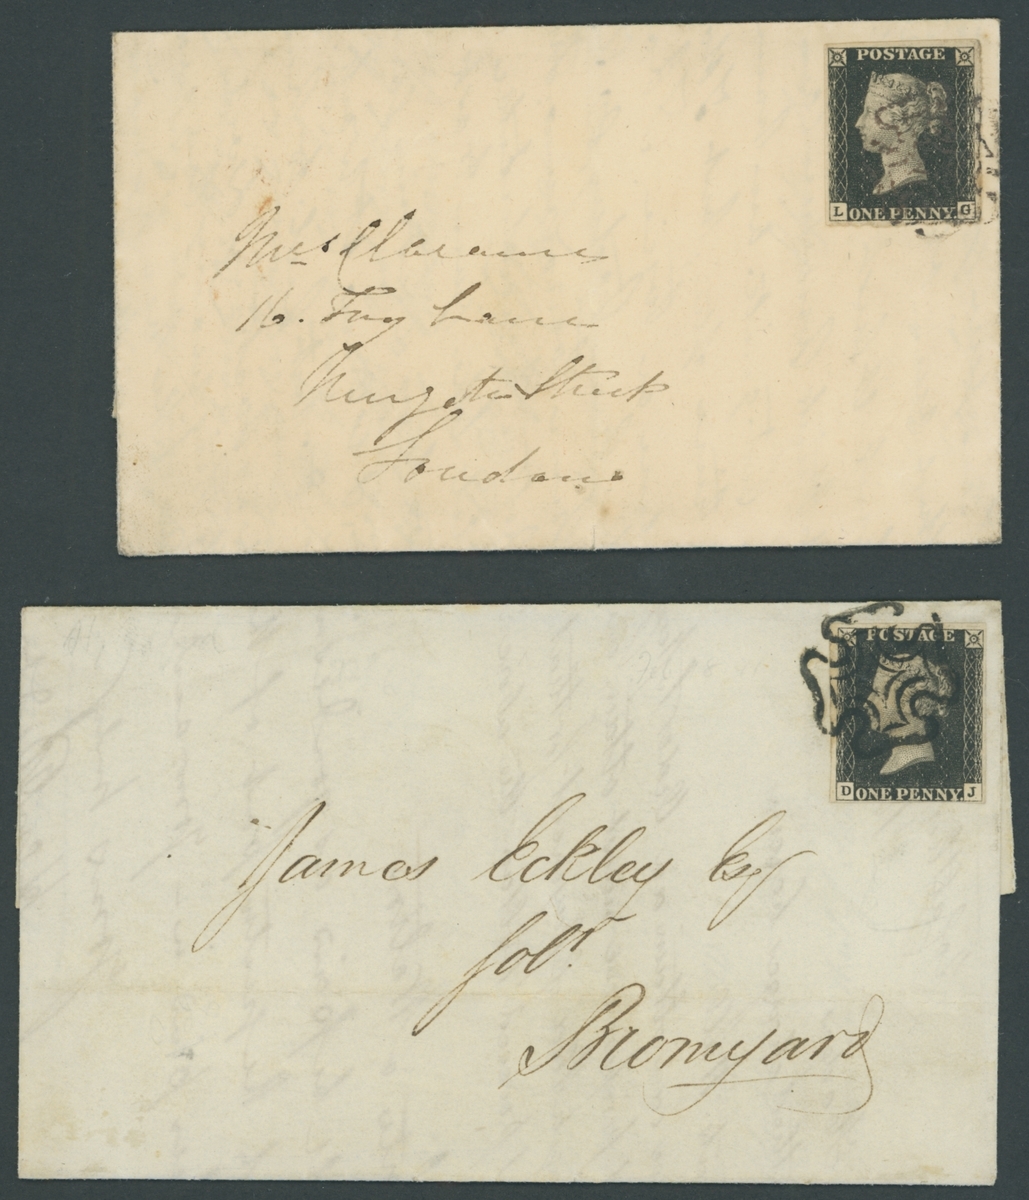 POSTAGE
L ONE PENNY. G
Mrs
16. Fry Lane
Street
London
POSTAGE
D ONE PENNY. J
James Eckley Esqr
Solr.
Bromyard